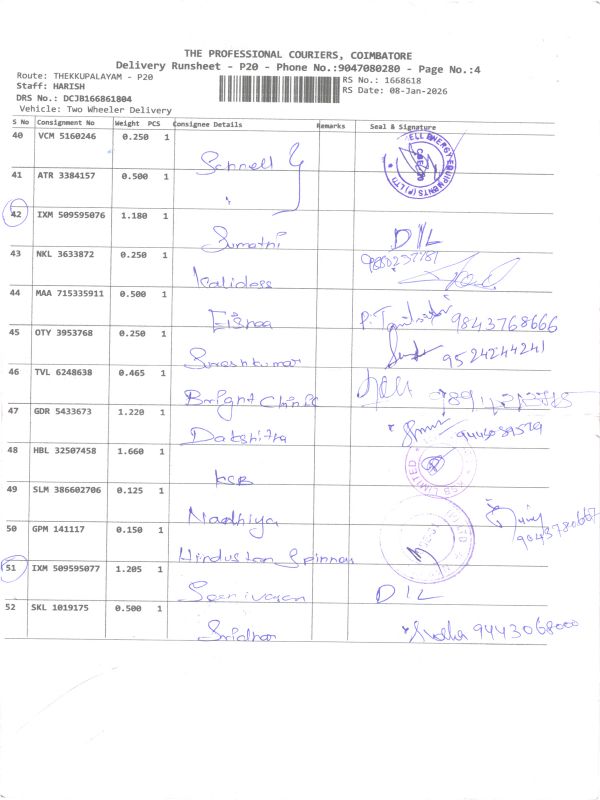 THE PROFESSIONAL COURIERS, COIMBATORE
Delivery Runsheet - P20 - Phone No.:9047080280 - Page No.:4
Route: THEKKUPALAYAM - P20
RS No.: 1668618
Staff: HARISH
RS Date: 08-Jan-2026
DRS No.: DCJB166861804
Vehicle: Two Wheeler Delivery
S No Consignment No Weight PCS Consignee Details Remarks Seal & Signature
40 VCM 5160246 0.250 1 Schnell
41 ATR 3384157 0.500 1
42 IXM 509595076 1.180 1 Sumathi D/L
43 NKL 3633872 0.250 1 Kalidoss
44 MAA 715335911 0.500 1 9843768666
45 OTY 3953768 0.250 1 Sureshkumar 9524244241
46 TVL 6248638 0.465 1 Bright Clinic
47 GDR 5433673 1.220 1 Dakshitha
48 HBL 32507458 1.660 1 KSB
49 SLM 386602706 0.125 1 Nadhiya
50 GPM 141117 0.150 1 Hindustan Spinners
51 IXM 509595077 1.205 1 Seenivasan D/L
52 SKL 1019175 0.500 1 Sridhar